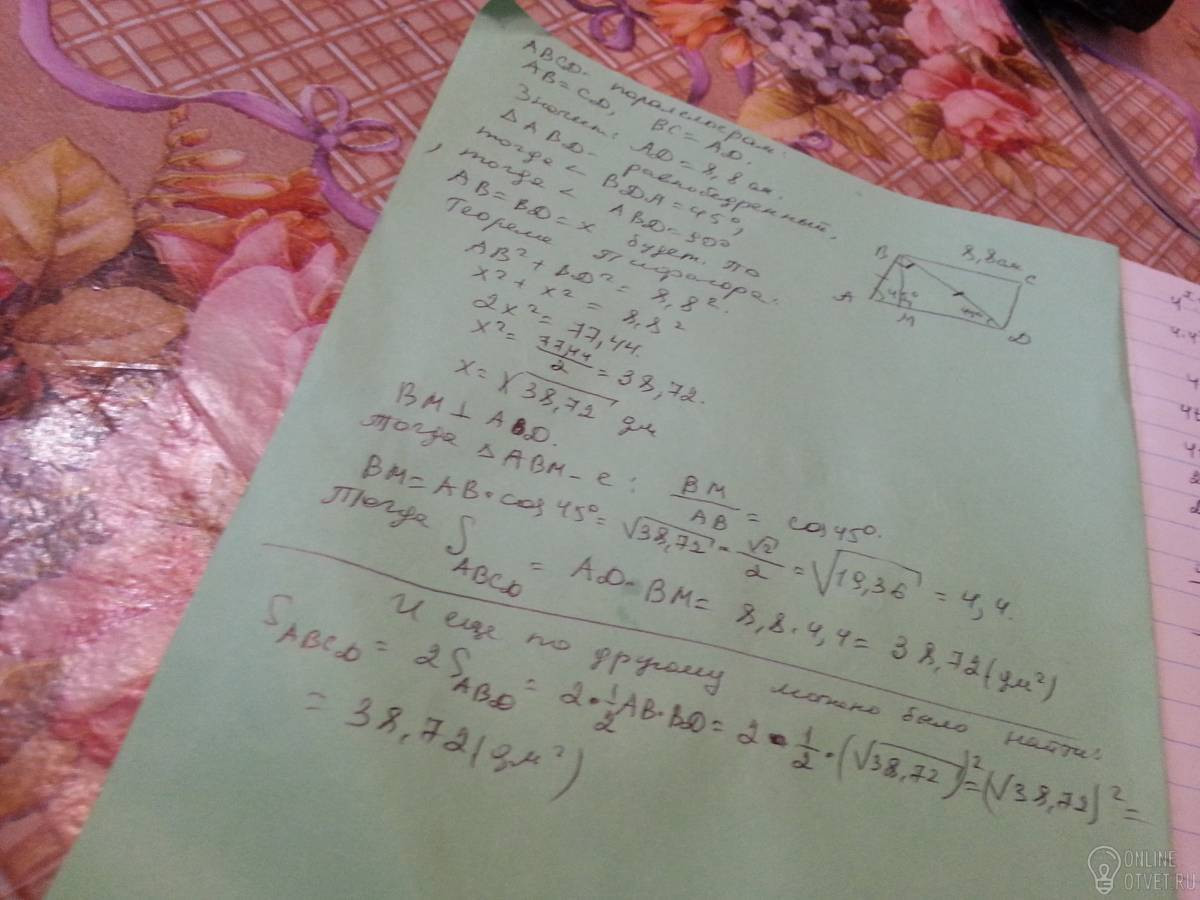 ABCD - паралелограм:
AB = CD, BC = AD.
Значит: AD = 8,8 дм.
△ ABD - равнобедренный,
тогда < BDA = 45°,
, тогда < ABD = 90°
AB = BD = x будет. По
Теореме Пифагора:
AB² + BD² = 8,8².
x² + x² = 8,8²
2x² = 77,44.
x² = 77,44/2 = 38,72.
x = √38,72 дм
BM ⊥ ABD.
Тогда △ABM-е: BM/AB = cos 45°.
BM = AB · cos 45° = √38,72 · √2/2 = √19,36 = 4,4.
Тогда S ABCD = AD · BM = 8,8 · 4,4 = 38,72 (дм²)
И еще по другому можно было найти:
S ABCD = 2S ABD = 2 · 1/2 AB · BD = 2 · 1/2 · (√38,72)² = (√38,72)² =
= 38,72 (дм²)
B
8,8 дм
C
A
45°
45°
M
D
ONLINE
OTVET.RU